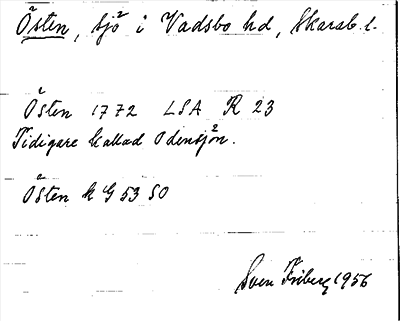 Östen, sjö i Vadsbo hd, Skarab. l.
Östen 1772 LSA R 23
Tidigare kallad Odensjön.
Östen k G 53 SO
Sven Friberg 1956